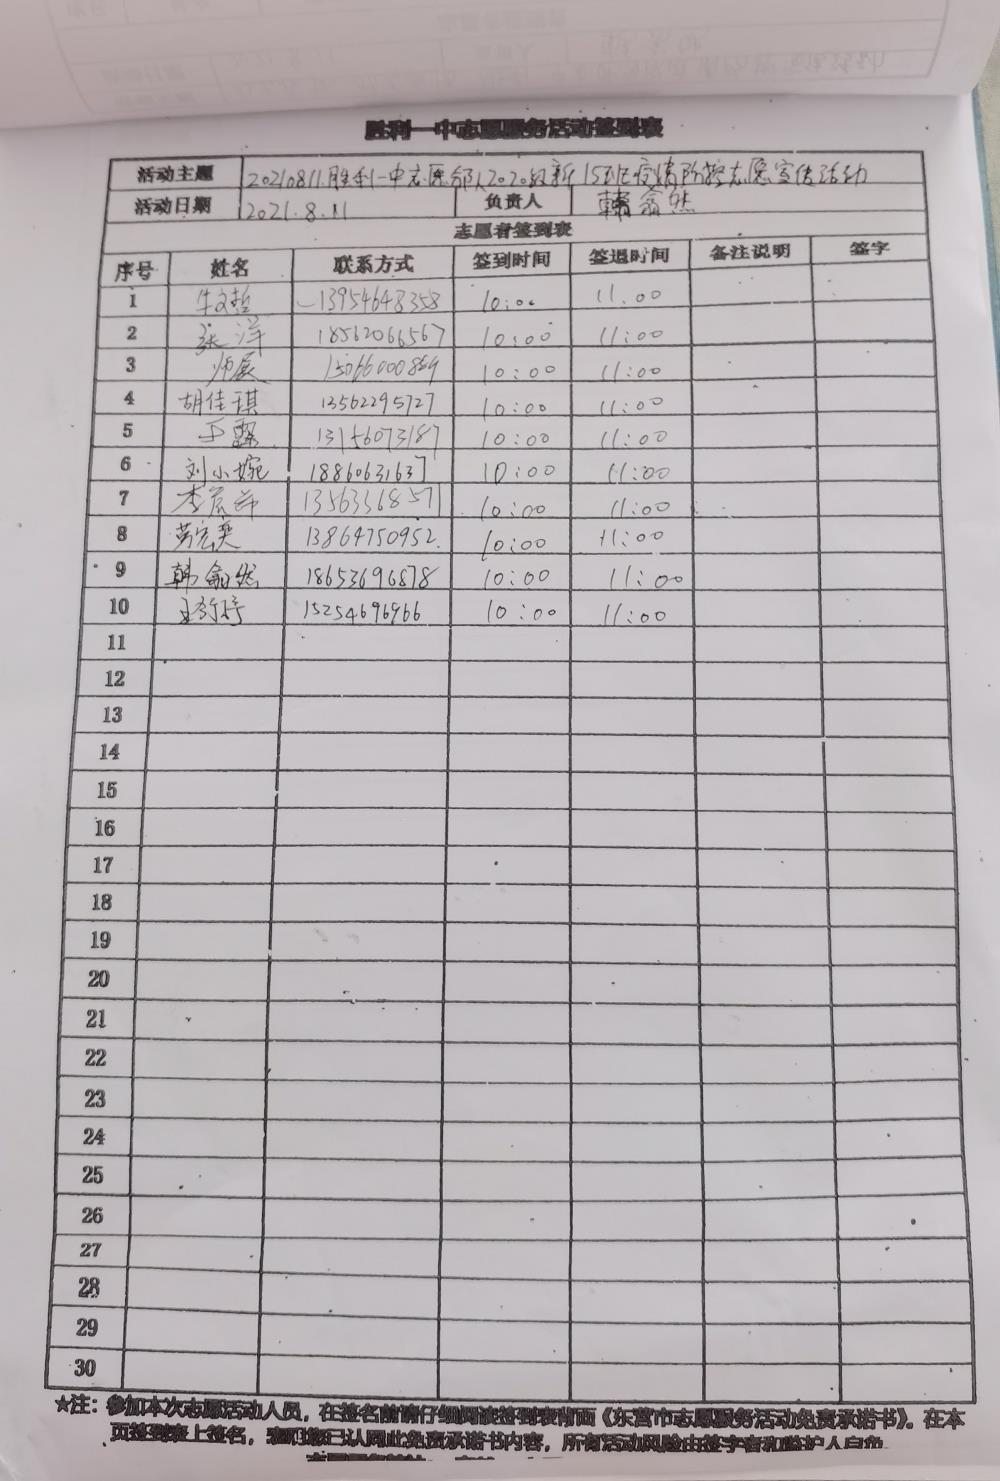 胜利一中志愿服务活动签到表
活动主题 20210811胜利一中志愿部人2020级新15社区疫情防控志愿宣传活动
活动日期 2021.8.11 负责人 韩翕然
志愿者签到表
序号 姓名 联系方式 签到时间 签退时间 备注说明 签字
1 牛文哲 13954648358 10:00 11:00
2 张洋 18562066567 10:00 11:00
3 帅展 15066000859 10:00 11:00
4 胡佳琪 13562295727 10:00 11:00
5 王露 13156073187 10:00 11:00
6 刘小婉 18860631637 10:00 11:00
7 李 13563368571 10:00 11:00
8 13864750952 10:00 11:00
9 韩翕然 18653696878 10:00 11:00
10 王 15254696966 10:00 11:00
11
12
13
14
15
16
17
18
19
20
21
22
23
24
25
26
27
28
29
30
★注：参加本次志愿活动人员，在签名前请仔细阅读签到表背面《东营市志愿服务活动免责承诺书》。在本
页签到表上签名，表明您已认同此免责承诺书内容，所有活动风险由签字者和监护人自负